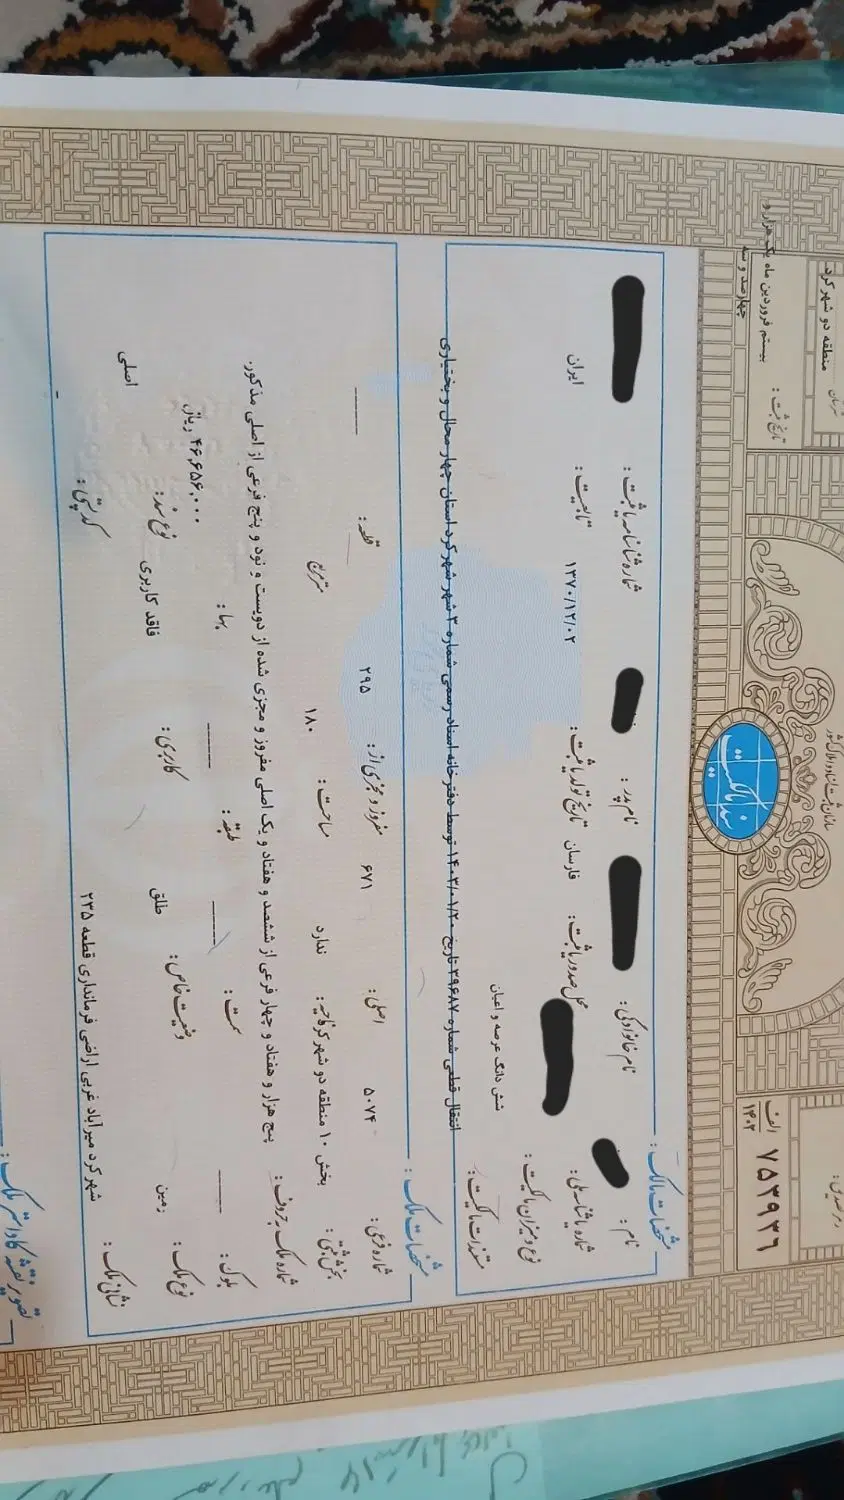 سازمان ثبت اسناد و املاک کشور
سند مالکیت
منطقه دو شهرکرد
تاریخ ثبت :
بیستم فروردین ماه یک هزار و
چهارصد و سه
الف
۱۴۰۲
۷۵۳۹۳۶
مشخصات مالک :
نام : نام خانوادگی : نام پدر : شماره شناسنامه یا ثبت :
شماره ملی یا شناسه ملی : محل صدور یا ثبت : فارسان تاریخ تولد یا ثبت : ۱۳۷۰/۱۲/۰۲ تابعیت : ایران
نوع و میزان مالکیت : شش دانگ عرصه و اعیان
مستندات مالکیت :
انتقال قطعی شماره ۳۹۶۸۷ تاریخ ۱۴۰۳/۰۱/۲۰ توسط دفترخانه اسناد رسمی شماره ۳ شهر شهرکرد استان چهارمحال و بختیاری
مشخصات ملک :
شماره فرعی : ۵۰۷۴ اصلی : ۶۷۱ مفروز و مجزی از : ۲۹۵ قطعه :
بخش ثبتی : بخش ۱۰ منطقه دو شهرکرد ناحیه : ندارد مساحت : ۱۸۰ مترمربع
شماره ملک بحروف : پنج هزار و هفتاد و چهار فرعی از ششصد و هفتاد و یک اصلی مفروز و مجزی شده از دویست و نود و پنج فرعی از اصلی مذکور.
بلوک : سمت : طبقه : بها : ۴۶,۶۵۶,۰۰۰ ریال
نوع ملک : زمین وضعیت خاص : طلق کاربری : فاقد کاربری نوع سند : اصلی
نشانی ملک : شهرکرد میرآباد غربی اراضی فرمانداری قطعه ۲۳۵ کدپستی :
تصویر نقشه کاداستر ملک :